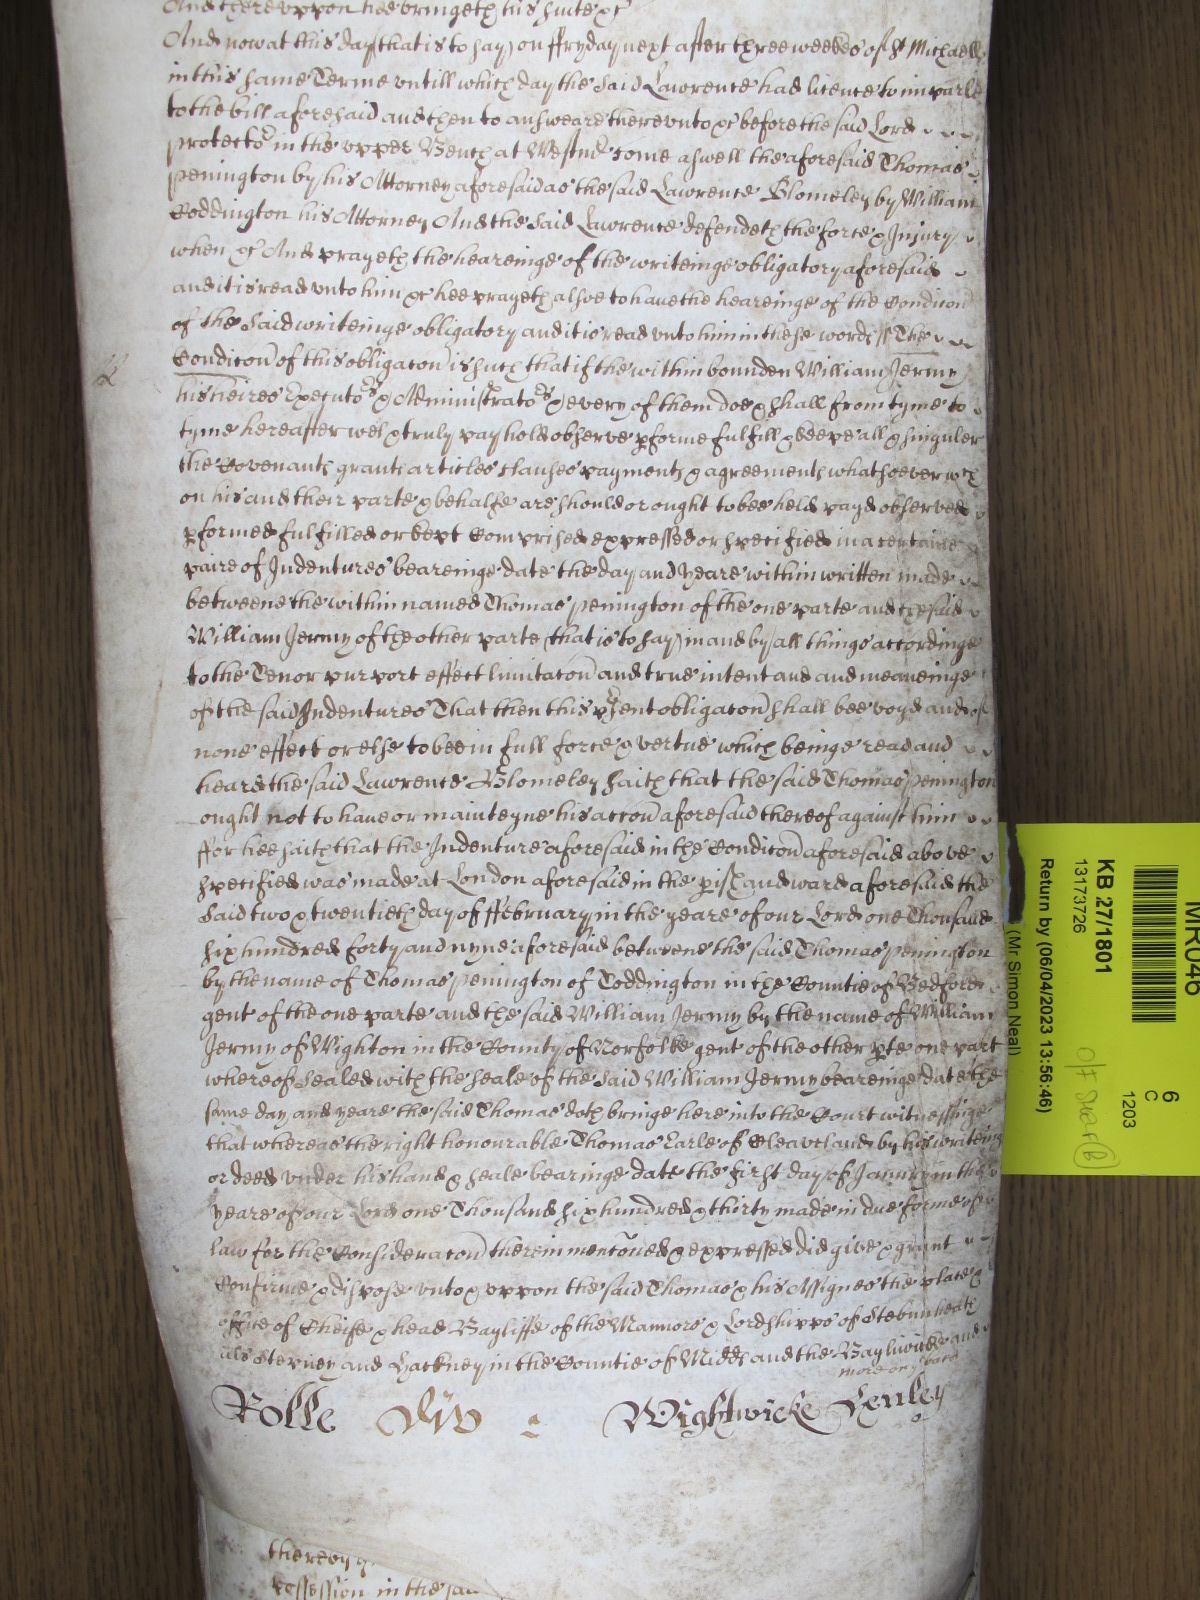 And thereuppon hee bringeth his suite &c
And now at this day (that is to say) on ffryday next after three weekes of St Michaell
in this same Terme untill which day the said Lawrence had licence to imparle
to the bill aforesaid and then to answeare thereunto &c before the said Lord
protector in the upper Bench at Westmr come aswell the aforesaid Thomas
Penington by his Attorney aforesaid as the said Lawrence Blomeley by William
Coddington his Attorney And the said Lawrence defendeth the force & Injury
when &c And prayeth the heareinge of the writeinge obligatory aforesaid
and it is read unto him &c hee prayeth alsoe to have the heareinge of the Condicon
of the said writeinge obligatory and it is read unto him in these words ss The
Condicon of this obligacon is such that if the within bounden William Jermy
his heires Executors & Administrators & every of them doe & shall from tyme to
tyme hereafter well & truly pay hold observe pforme fulfill & keepe all & singuler
the Covenants grants articles clauses payments & agreements whatsoever wch
on his and their parte & behalfe are should or ought to bee held payd observed
pformed fulfilled or kept Comprised expressed or specified in a certaine
paire of Indentures beareinge date the day and yeare within written made
betweene the within named Thomas Penington of the one parte and the said
William Jermy of the other parte (that is to say) in and by all things accordinge
to the Tenor purport effect limitacon and true intent and and meaneinge
of the said Indentures That then this psent obligacon shall bee voyd and of
none effect or else to bee in full force & vertue which beinge read and
heard the said Lawrence Blomeley saith that the said Thomas Penington
ought not to have or mainteyne his accon aforesaid thereof against him
ffor hee saith that the Indenture aforesaid in the Condicon aforesaid above
specified was made at London aforesaid in the pish and ward aforesaid the
said two & twentieth day of ffebruary in the yeare of our Lord one Thousand
six hundred forty and nyne aforesaid betweene the said Thomas Penington
by the name of Thomas Penington of Toddington in the Countie of Bedford
gent of the one parte and the said William Jermy by the name of William
Jermy of Wighton in the County of Norfolke gent of the other pte one part
whereof sealed with the seale of the said William Jermy beareinge date the
same day and yeare the said Thomas doth bringe here into the Court witnessinge
that whereas the right honourable Thomas Earle of Cleaveland by his writeing
or deed under his hand & seale bearinge date the first day of January in the
yeare of our Lord one Thousand six hundred & thirty made in due forme of
law for the Consideracon therein menconed & expressed did give & grant
Confirme & dispose unto & uppon the said Thomas & his Assignes the place &
office of Cheife & head Bayliffe of the Mannors & Lordshipps of Stebunheath
als Stepney and Hackney in the Countie of Midds and the Bayliwicke and
more on ye back
Rolle Div Wightwicke Henley
thereon
possession in the
MR046
6
C
1203
KB 27/1801
13173726
Return by (06/04/2023 13:56:46)
(Mr Simon Neal)